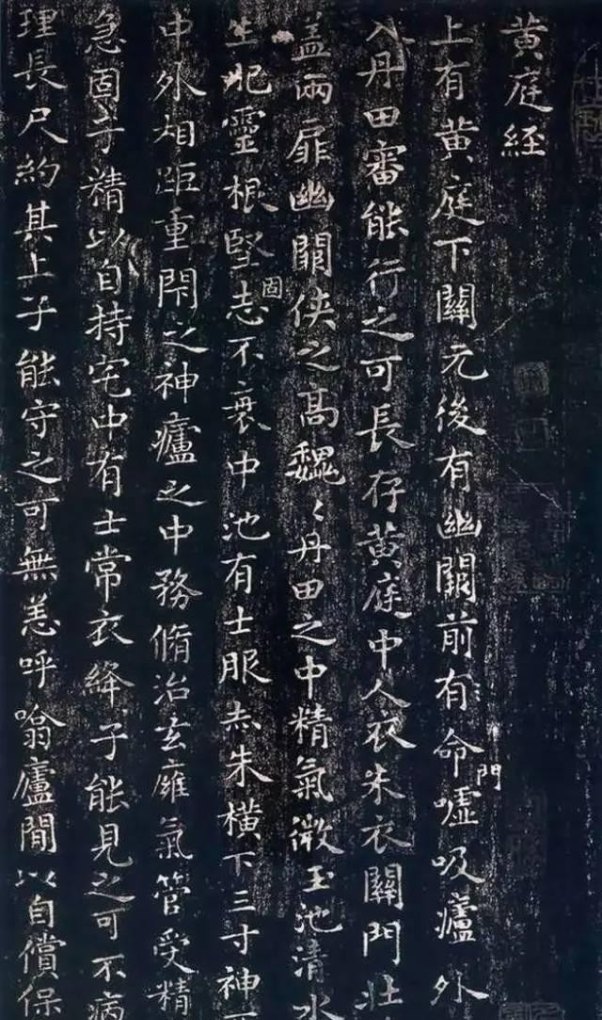 黄庭経
上有黄庭下關元後有幽闕前有命門嘘吸廬外
入丹田審能行之可長存黄庭中人衣朱衣關門壯
盖兩扉幽闕侠之高魏〻丹田之中精氣微玉池清水
生肥靈根堅固志不衰中池有士服赤朱横下三寸神
中外相距重閇之神廬之中務脩治玄癰氣管受精
急固子精以自持宅中有士常衣絳子能見之可不病
理長尺約其上子能守之可無恙呼噏廬閒以自償保